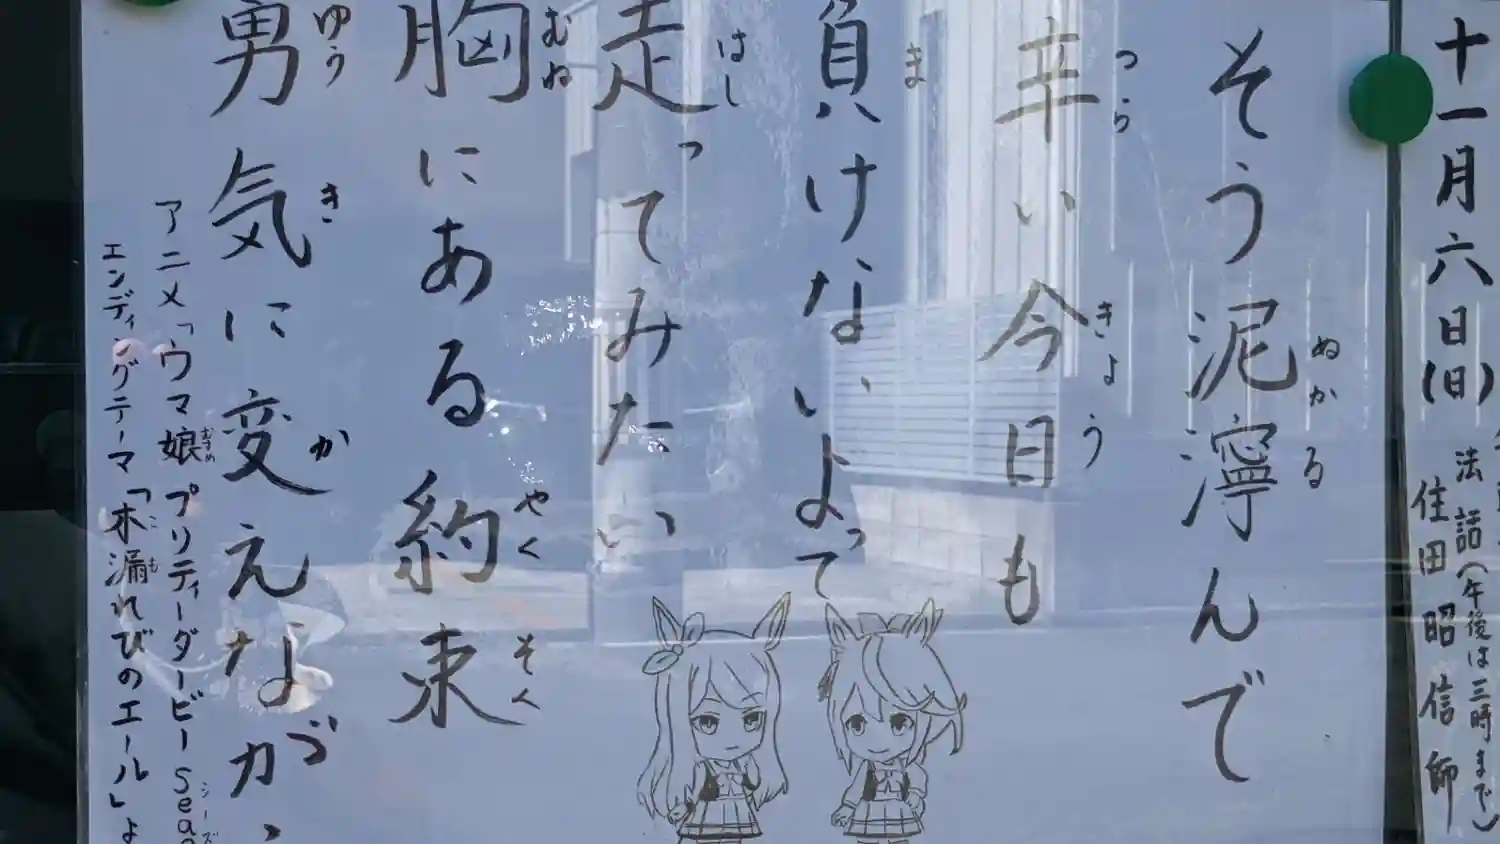 十一月六日(日)
法話(午後は三時まで)
住田昭信師
そう泥濘んで
ぬかる
辛い今日も
つら きょう
負けないよって
ま
走ってみたい
はし
胸にある約束
むね やくそく
勇気に変えながら
ゆうき か
アニメ「ウマ娘 プリティーダービー Sea
むすめ シーズ
エンディングテーマ「木漏れびのエール」よ
こも